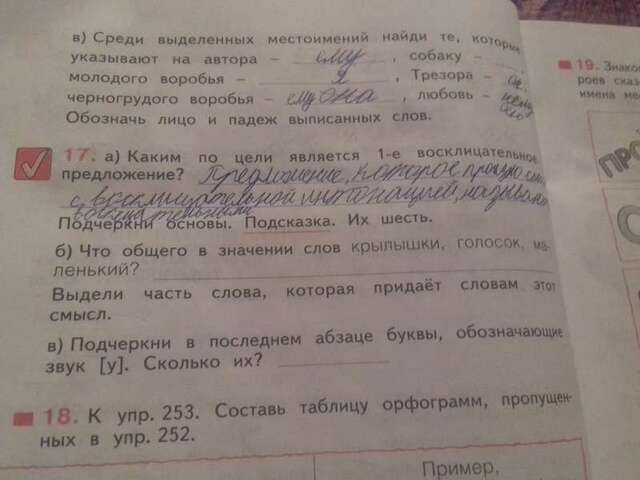 в) Среди выделенных местоимений найди те, которые
указывают на автора – ему, собаку –
молодого воробья – я, Трезора – он.
черногрудого воробья – ему она, любовь –
Обозначь лицо и падеж выписанных слов.
17. а) Каким по цели является 1-е восклицательное
предложение? Предложение, которое
с восклицательной интонацией,
Подчеркни основы. Подсказка. Их шесть.
б) Что общего в значении слов крылышки, голосок, ма-
ленький?
Выдели часть слова, которая придаёт словам этот
смысл.
в) Подчеркни в последнем абзаце буквы, обозначающие
звук [у]. Сколько их?
18. К упр. 253. Составь таблицу орфограмм, пропущен-
ных в упр. 252.
Пример,
19. Знако
роев сказ
имена ме
ПРО